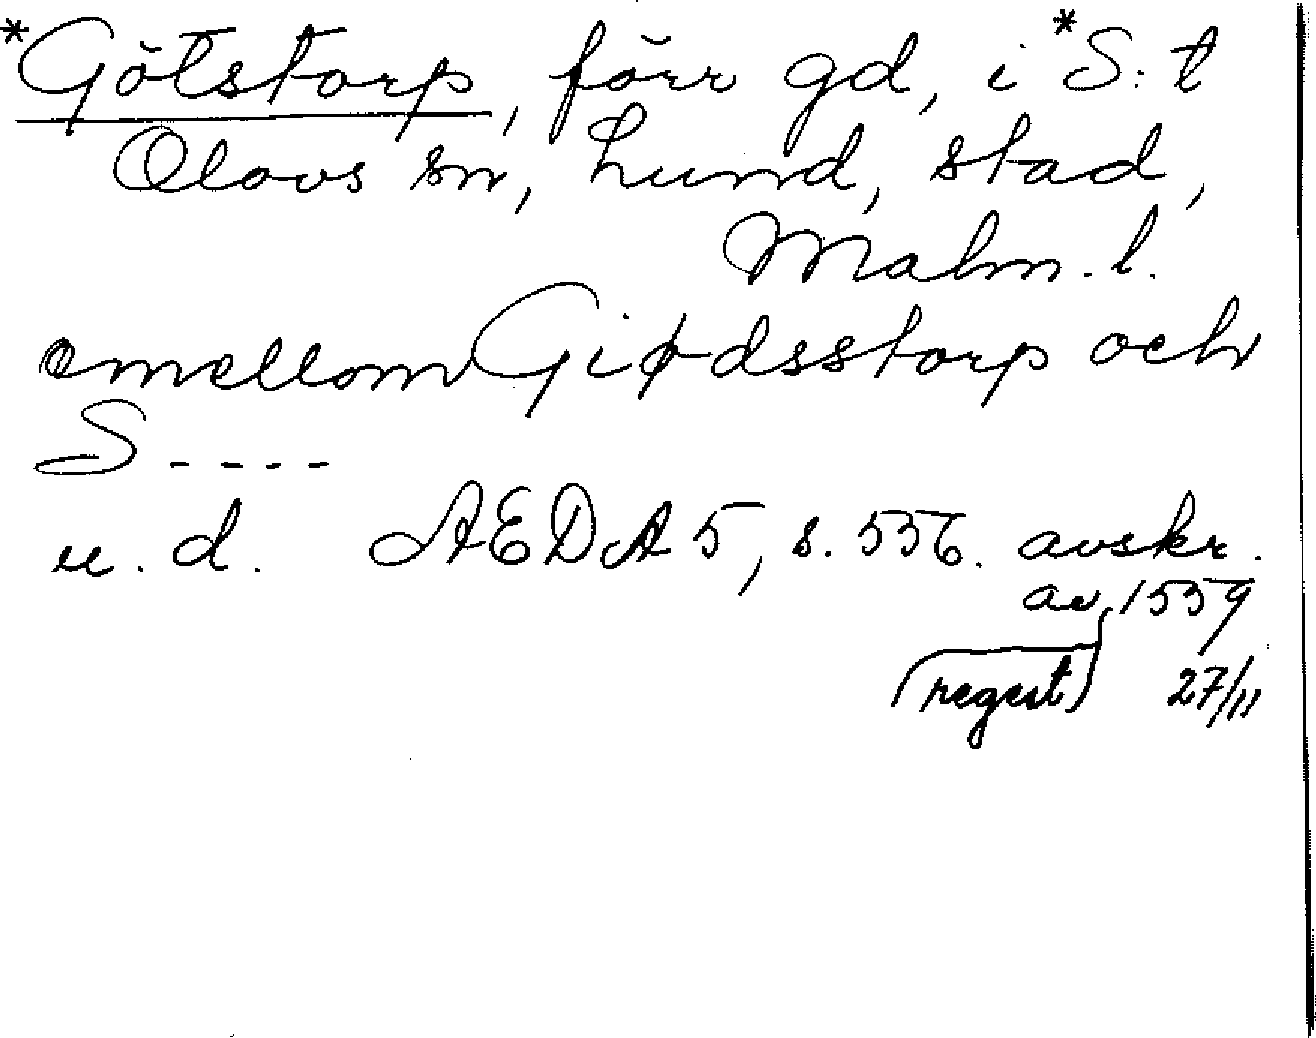 *Götstorp, förr gd, i *S:t
Olovs sn, Lund, stad,
Malm. l.
emellom Giødsstorp och
S----
u. d. AEDA 5, s. 556. avskr.
av 1559
(regest) 27/11